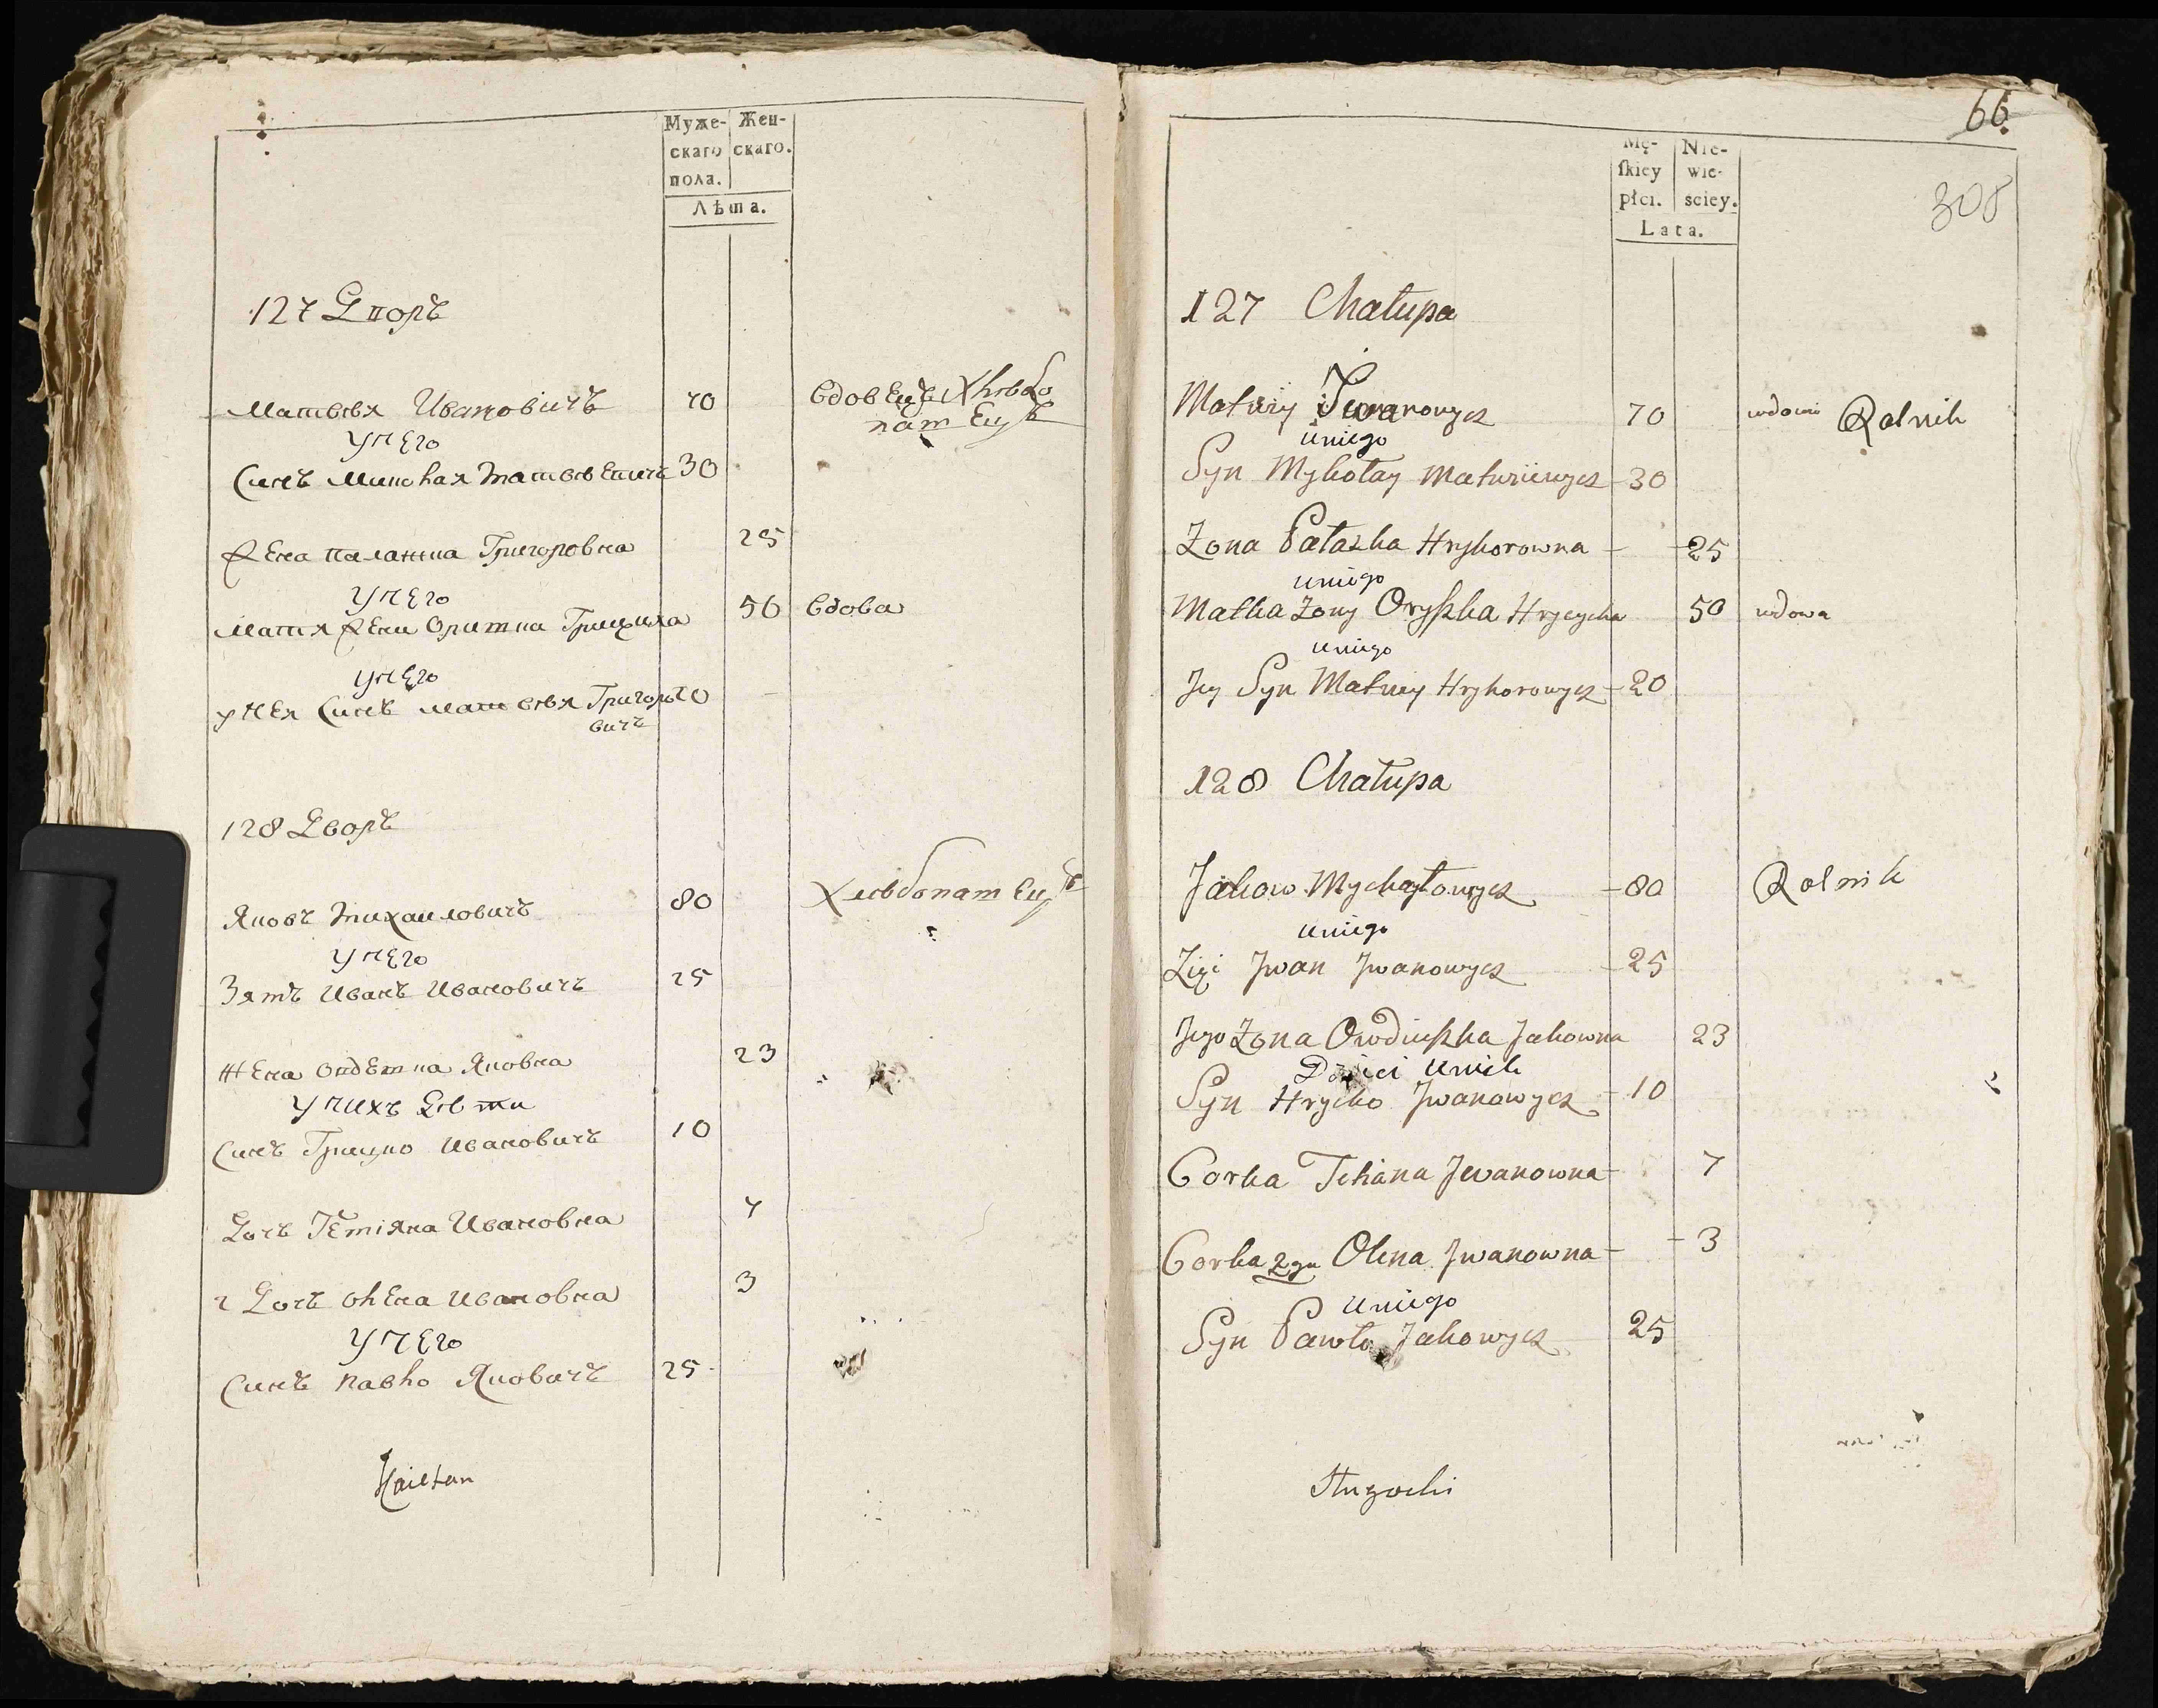 Муже- Жен-
скаго скаго.
пола.
Лѣта.
127 Дворъ
Матвѣя Ивановичъ 70 вдовецъ Хлѣбо
патецъ
У него
Синъ Миколая Матвѣевичъ 30
Жена Палашка Григоровна 25
У него
Матя Жени Оришка Грициха 50 вдова
У него
у нея Синъ Матвѣя Григоро 20
вичъ
128 Дворъ
Яковъ Михаиловичъ 80 Хлѣбопатецъ
У него
Зятъ Иванъ Ивановичъ 25
Жена Овдешка Яковна 23
У нихъ Дѣти
Синъ Грицко Ивановичъ 10
Дочъ Тетіяна Ивановна 7
2 Дочъ Олена Ивановна 3
У него
Синъ Павло Яковичъ 25
Kaietan
66.
308
Mę- Nie-
ſkiey wie-
płci. sciey.
Lata.
127 Chałupa
Matwiy Iwanowycz 70 wdowiec Rolnik
u niego
Syn Mykołay Matwiiewycz 30
Zona Pałazka Hryhorowna 25
u niego
Matka Zony Oryszka Hrycycha 50 wdowa
u niego
Jey Syn Matwiy Hryhorowycz 20
128 Chałupa
Jakow Mychayłowycz 80 Rolnik
u niego
Zięć Jwan Jwanowycz 25
Jego Zona Owdiuszka Jakowna 23
Dzieci u nich
Syn Hrycko Jwanowycz 10
Corka Tetiana Jwanowna 7
Corka 2ga Olena Jwanowna 3
u niego
Syn Pawło Jakowycz 25